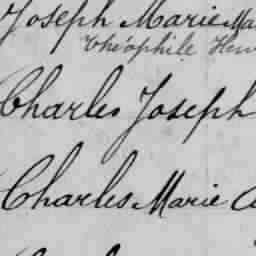 Joseph Marie Ma
Théophile Hen
Charles Joseph
Charles Marie